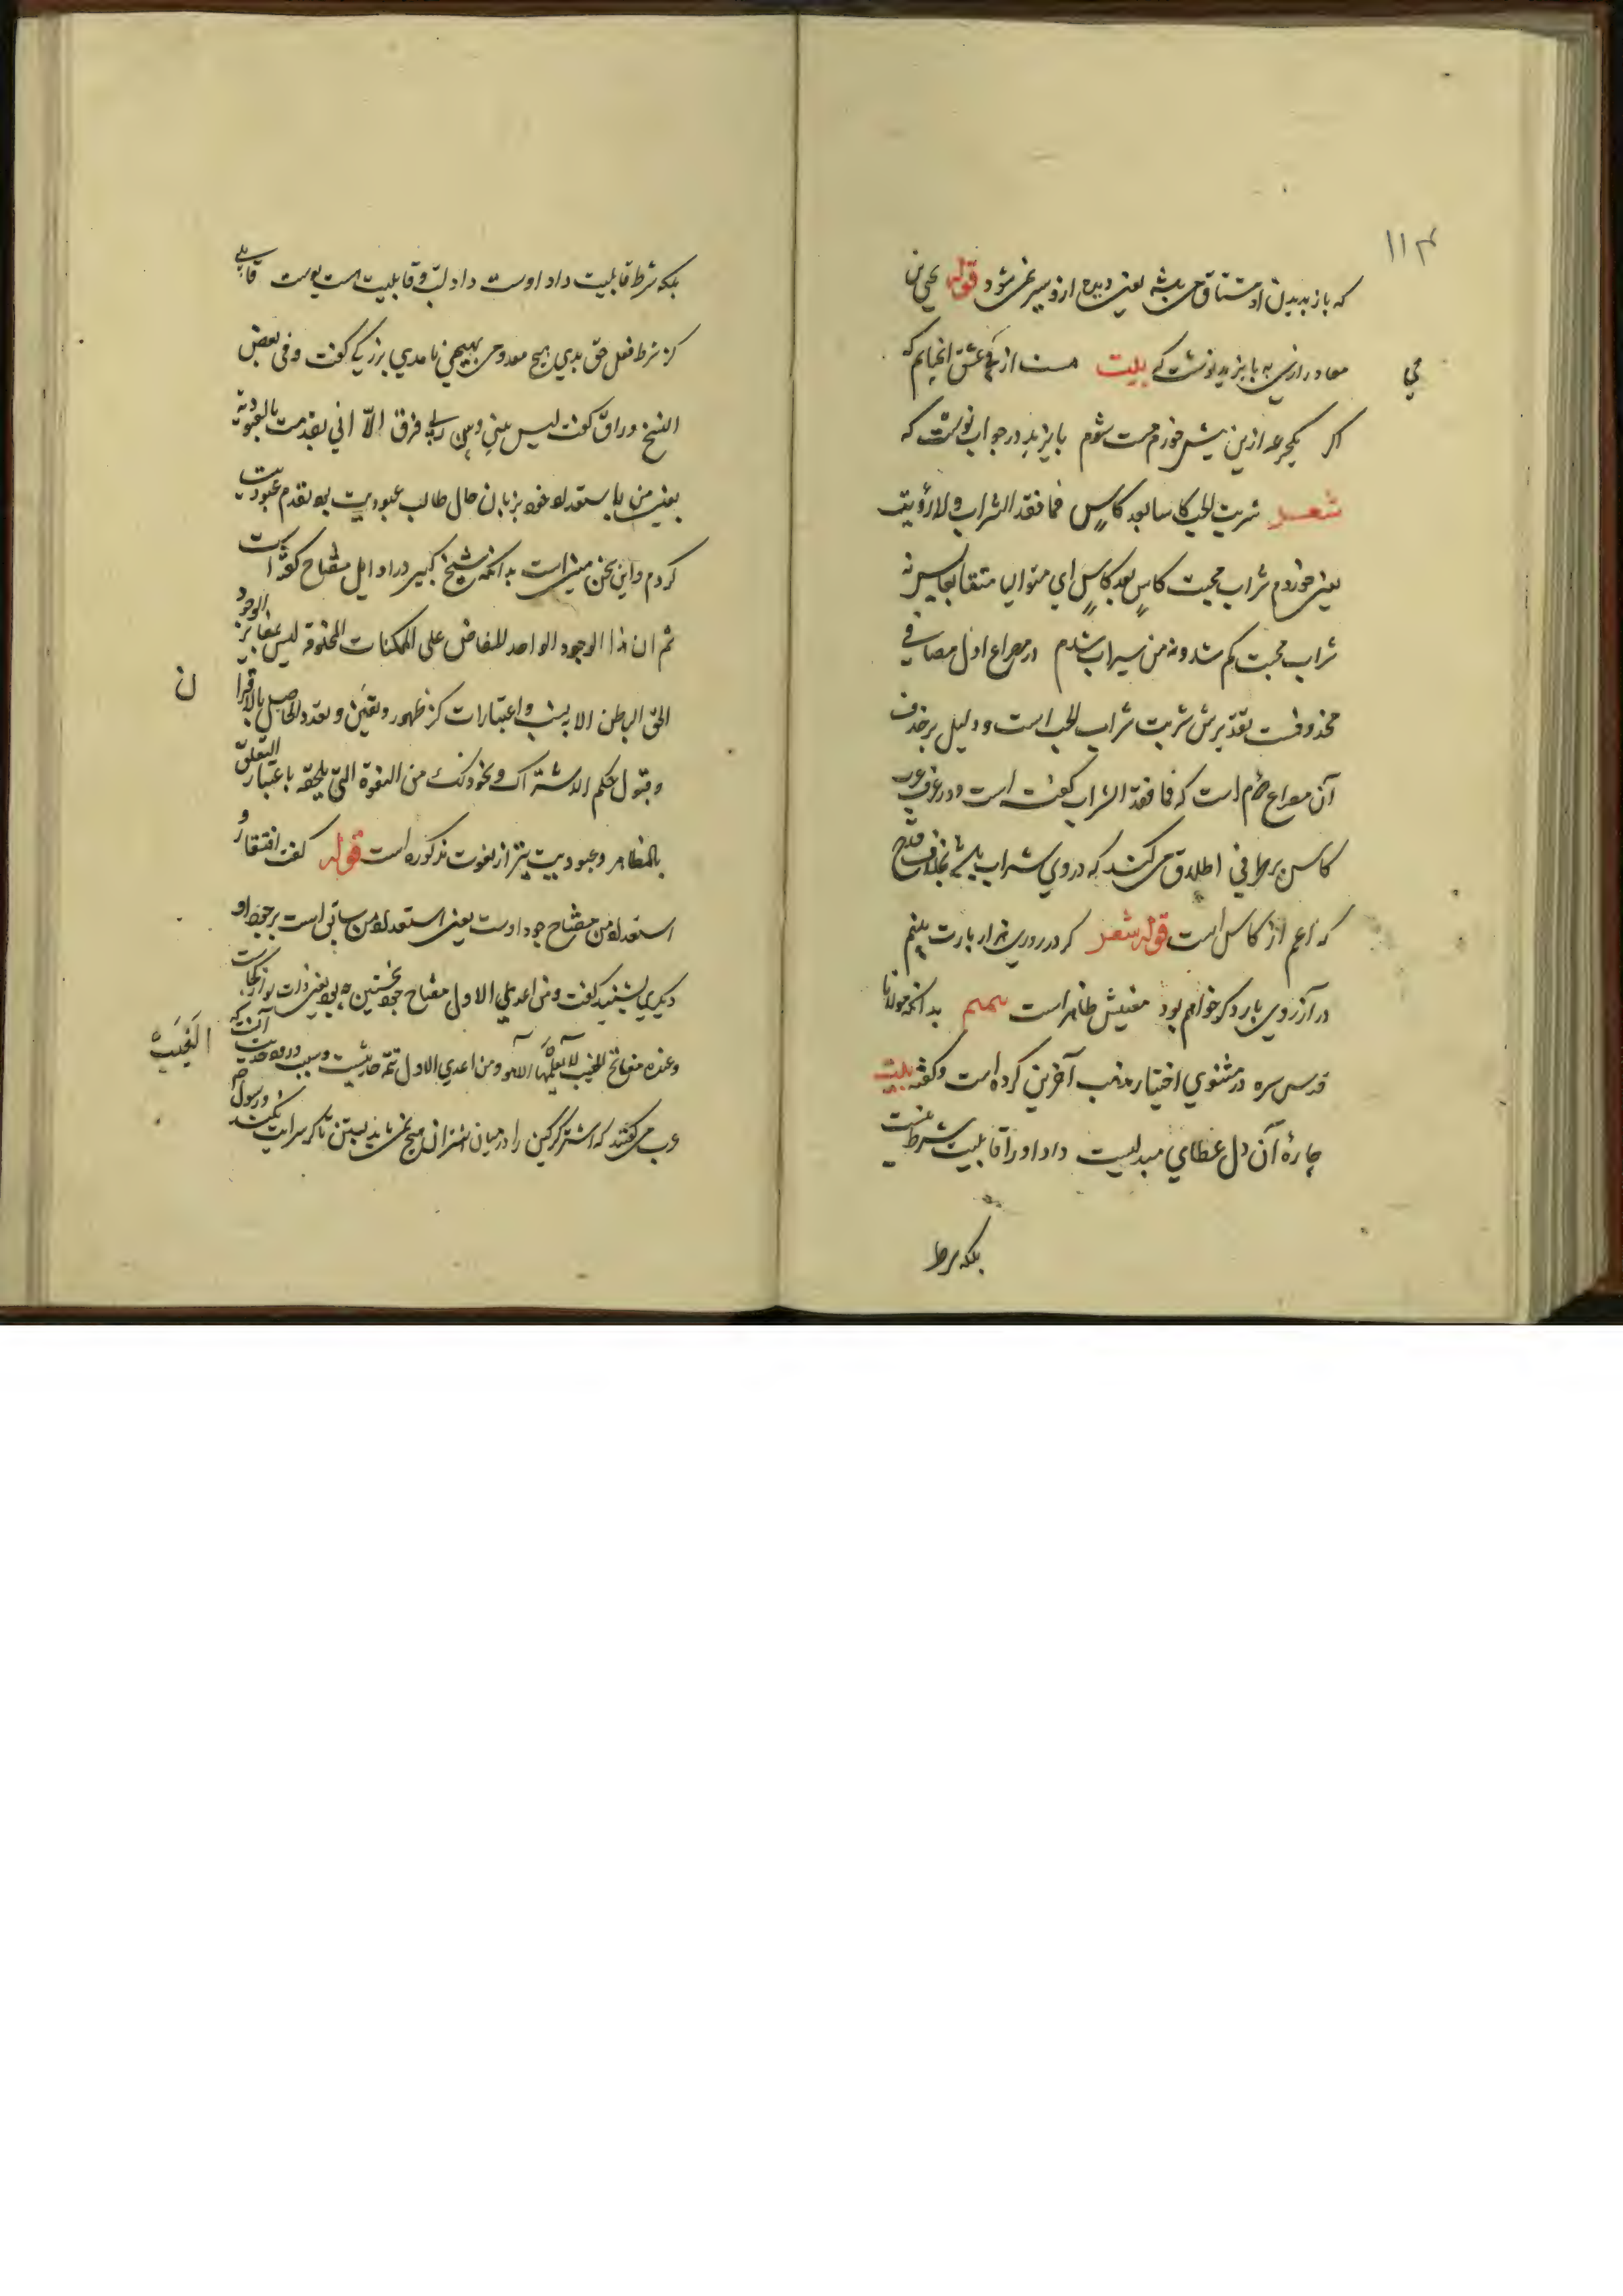 ۱۱۴
که باز بدیدن او مشتاق می باشد یعنی دیده ازو سیر نمی شود قوله یحیی بن
معاد رازی به بایزید نوشت که بیت مست از می عشق آنچنانم که
می
اگر یکجرعه ازین بیش خورم مست شوم بایزید در جواب نوشت که
شعر شربت الحب کاسا بعد کاس فما فقد الشراب ولا رویت
یعنی خوردم شراب محبت کاس بعد کاس ای متوالیا متعاقبا پس نه
شراب محبت کم شد و نه من سیراب شدم در مصراع اول مضافی
محذوفست تقدیرش شربت شراب الحب است و دلیل بر حذف
آن مصراع دوم است که فما فقد الشراب گفته است و در عرف عرب
کاس بر ظرفی اطلاق می کنند که در وی شراب باشد بخلاف قدح
که اعم از کاس است قوله شعر گر در روزی هزار بارت بینم
در آرزوی بار دگر خواهم بود معنیش ظاهر است بدانکه مولانا
قدس سره در مثنوی اختیار مذهب آخرین کرده است و گفته بیت
چارهٔ آن دل عطای مبدلیست داد او را قابلیت شرط نیست
بلکه شرط
بلکه شرط قابلیت داد اوست داد لبّ و قابلیت هست پوست قابلی
گر شرط فعل حق بدی هیچ معدومی بهستی نامدی بزرگی گفت وفی بعض
النسخ وراق گفت لیس بینی وبین ربی فرق الّا انی تقدمت بالعبودیة
یعنی من باستعداد خود بزبان حال طالب عبودیت بود تقدم عبودیت
کردم و این سخن مبنی است بدانکه شیخ کبیر در اوایل مفتاح گفته است
ثم ان هذا الوجود الواحد للفائض علی الممکنات المخلوقة لیس بمغایر للوجود
الحق الباطن الا بنسب واعتبارات کظهور وتعین وتعدد الحاصل بالاقترا
ن
وقبول حکم الاشتراک ونحو ذلک من النعوة التی یلحقه باعتبار التعلق
بالمظاهر وعبودیت نیز از نعوت مذکوره است قوله گفت افتقار و
استعداد من مفتاح جود اوست یعنی استعداد من سابق است بر جود او
دیگری بشنید گفت ومن اعدی الاول مفتاح جود نخستین چه بود یعنی ذات تو از کجاست
وعنده مفاتح الغیب لا یعلمها الا هو ومن اعدی الاول تتمه حدیثست وسبب ورود حدیث آنست که
الغیب
عرب می گفتند که اشتر گرگین را در میان اشتران صحیح نمی باید بستن تا که سرایت نکند ورسول